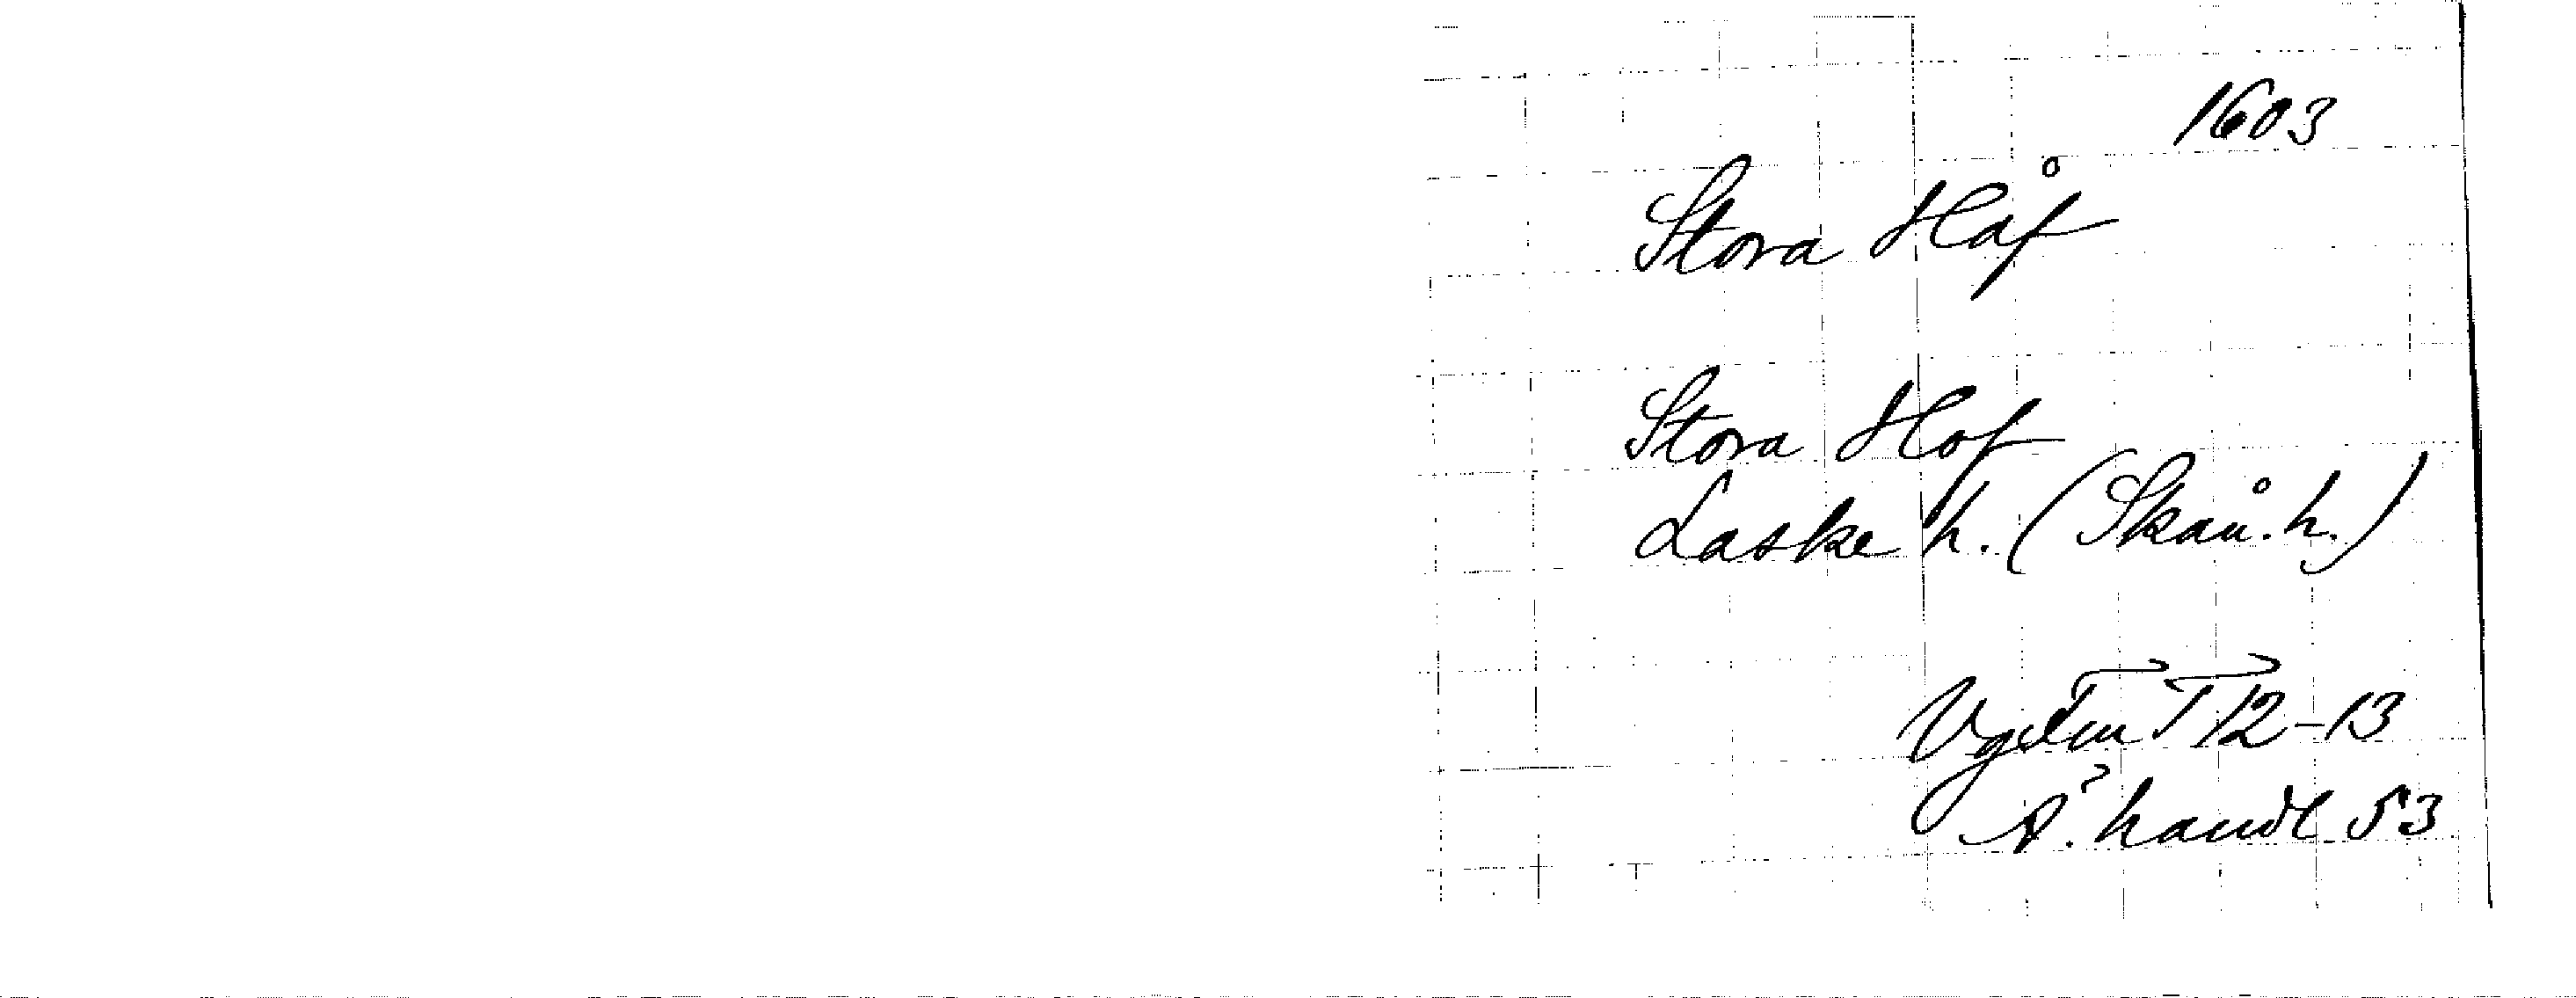 1603
Stora Håf
Stora Hof
Laske h. (Skån. h.)
12-13
handl 53